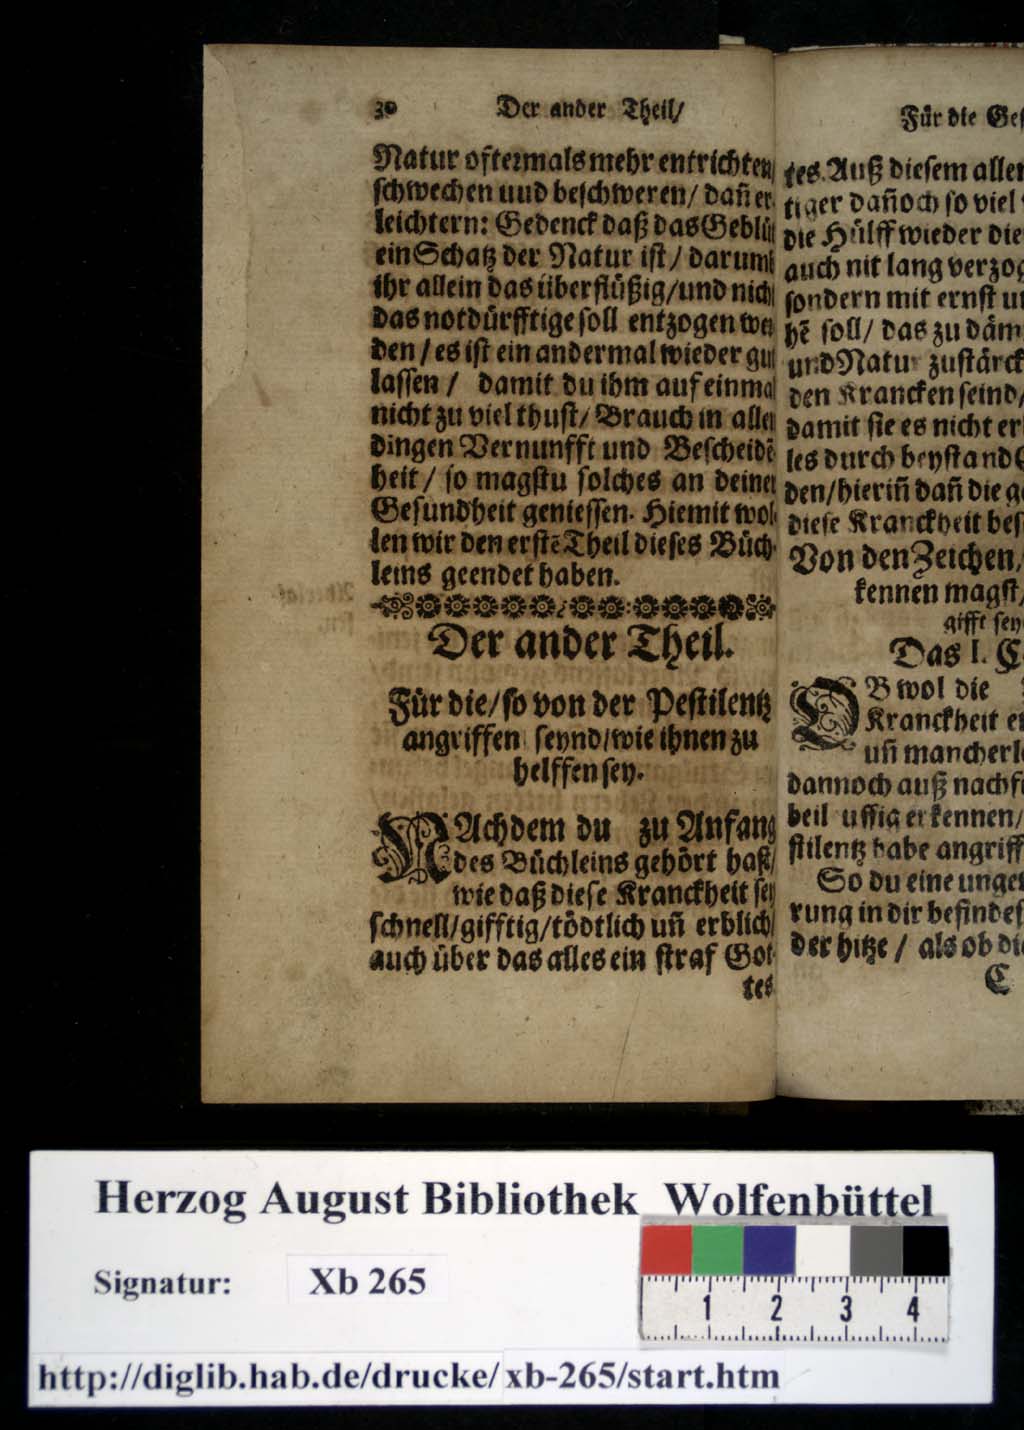 30 Der ander Theil/
Natur oftermals mehr entrichten
schwechen uud beschweren/ dañ er
leichtern: Gedenck daß das Geblüt
ein Schatz der Natur ist/ darumb
ihr allein das überflüßig/und nich
das notdürfftige soll entzogen wer
den/es ist ein andermal wieder gut
lassen/ damit du ihm auf einmal
nicht zu viel thust/ Brauch in allen
dingen Vernunfft und Bescheidē
heit/ so magstu solches an deiner
Gesundheit geniessen. Hiemit wol
len wir den erstē Theil dieses Büch-
leins geendet haben.
Der ander Theil.
Für die/so von der Pestilentz
angriffen seynd/wie ihnen zu
helffen sey.
NAchdem du zu Anfang
des Büchleins gehört hast/
wie daß diese Kranckheit sey
schnell/gifftig/tödtlich uñ erblich/
auch über das alles ein straf Got-
tes
Für die Ges
tes. Auß diesem allen
tiger dañoch so viel
die Hülff wieder die
auch nit lang verzog
sondern mit ernst un
hē soll/ das zu däm
und Natur zustärck
den Krancken seind/
damit sie es nicht er
les durch beystand
den/hieriñ dañ die ge
diese Kranckheit bes
Von den Zeichen/
kennen magst/
gifft sey
Das I. C
OB wol die
Kranckheit ei
uñ mancherle
dannoch auß nachf
beil uffig erkennen/
stilentz habe angriff
So du eine unge
rung in dir befindes
der hitze/ als ob die
C
Herzog August Bibliothek Wolfenbüttel
Signatur: Xb 265
1 2 3 4
http://diglib.hab.de/drucke/xb-265/start.htm